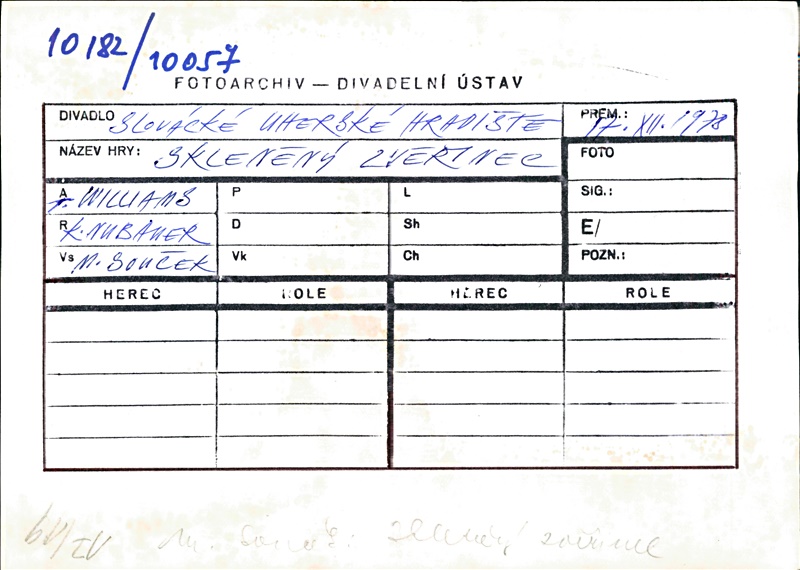 10182/10057
FOTOARCHIV — DIVADELNÍ ÚSTAV
DIVADLO SLOVÁCKÉ UHERSKÉ HRADIŠTĚ PREM.: 17. XII. 1978
NÁZEV HRY: SKLENĚNÝ ZVĚŘINEC FOTO
A T. WILLIAMS P L SIG.:
R K. NUBAUER D Sh E/
Vs M. SOUČEK Vk Ch POZN.:
HEREC ROLE HEREC ROLE
M. Souček: Skleněný zvěřinec